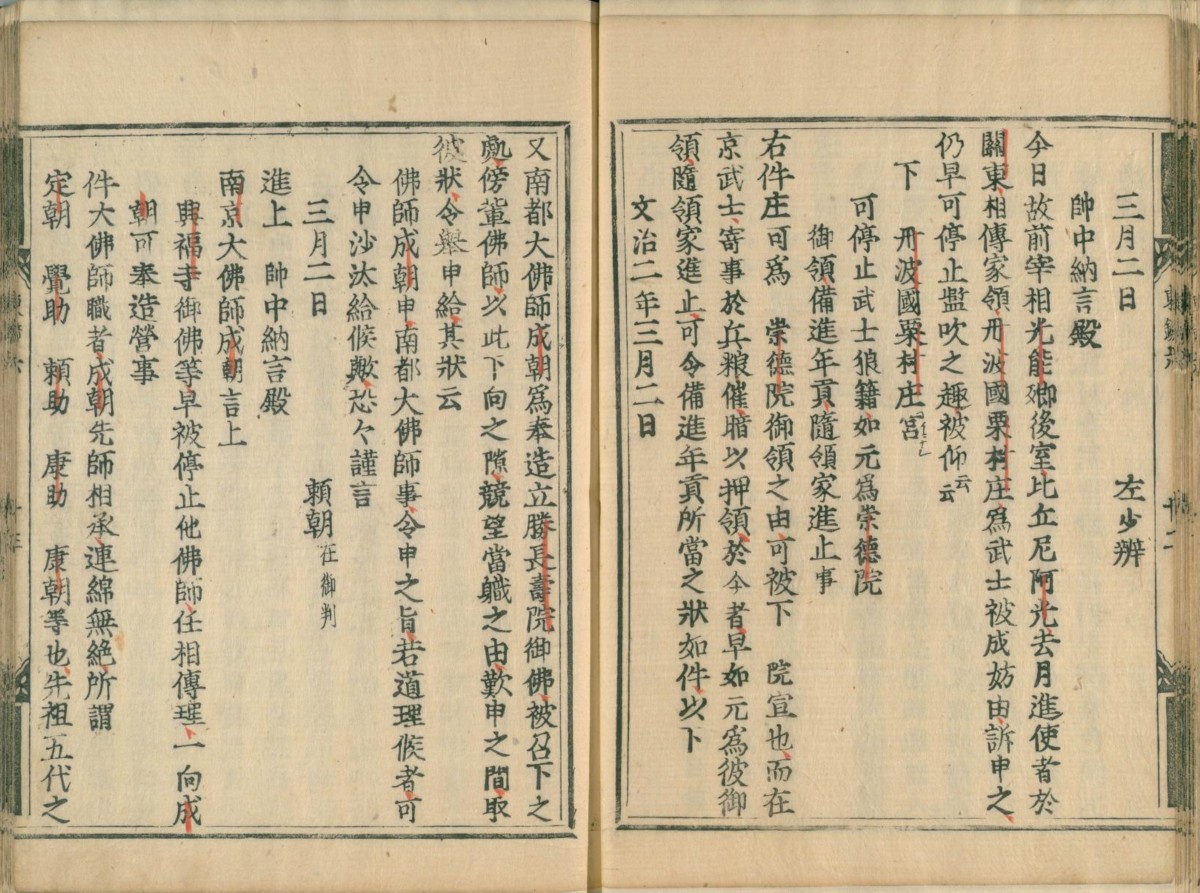 三月二日　左少辨
帥中納言殿
今日故前宰相光能卿後室比丘尼阿光去月進使者於
關東相傳家領丹波國栗村庄爲武士被成妨由訴申之
仍早可停止濫吹之趣被仰云云
下　丹波國栗村庄
可停止武士狼籍如元爲崇德院
御領備進年貢隨領家進止事
右件庄可爲　崇德院御領之由可被下　院宣也而在
京武士寄事於兵粮催暗以押領於今者早如元爲彼御
領隨領家進止可令備進年貢所當之狀如件以下
文治二年三月二日
又南都大佛師成朝爲奉造立勝長壽院御佛被召下之
處傍輩佛師以此下向之隙競望當職之由歎申之間取
彼狀令擧申給其狀云
佛師成朝申南都大佛師事令申之旨若道理候者可
令申沙汰給候歟恐々謹言
三月二日　賴朝在御判
進上　帥中納言殿
南京大佛師成朝言上
興福寺御佛等早被停止他佛師任相傳理一向成
朝可奉造營事
件大佛師職者成朝先師相承連綿無絶所謂
定朝　覺助　賴助　康助　康朝等也先祖五代之